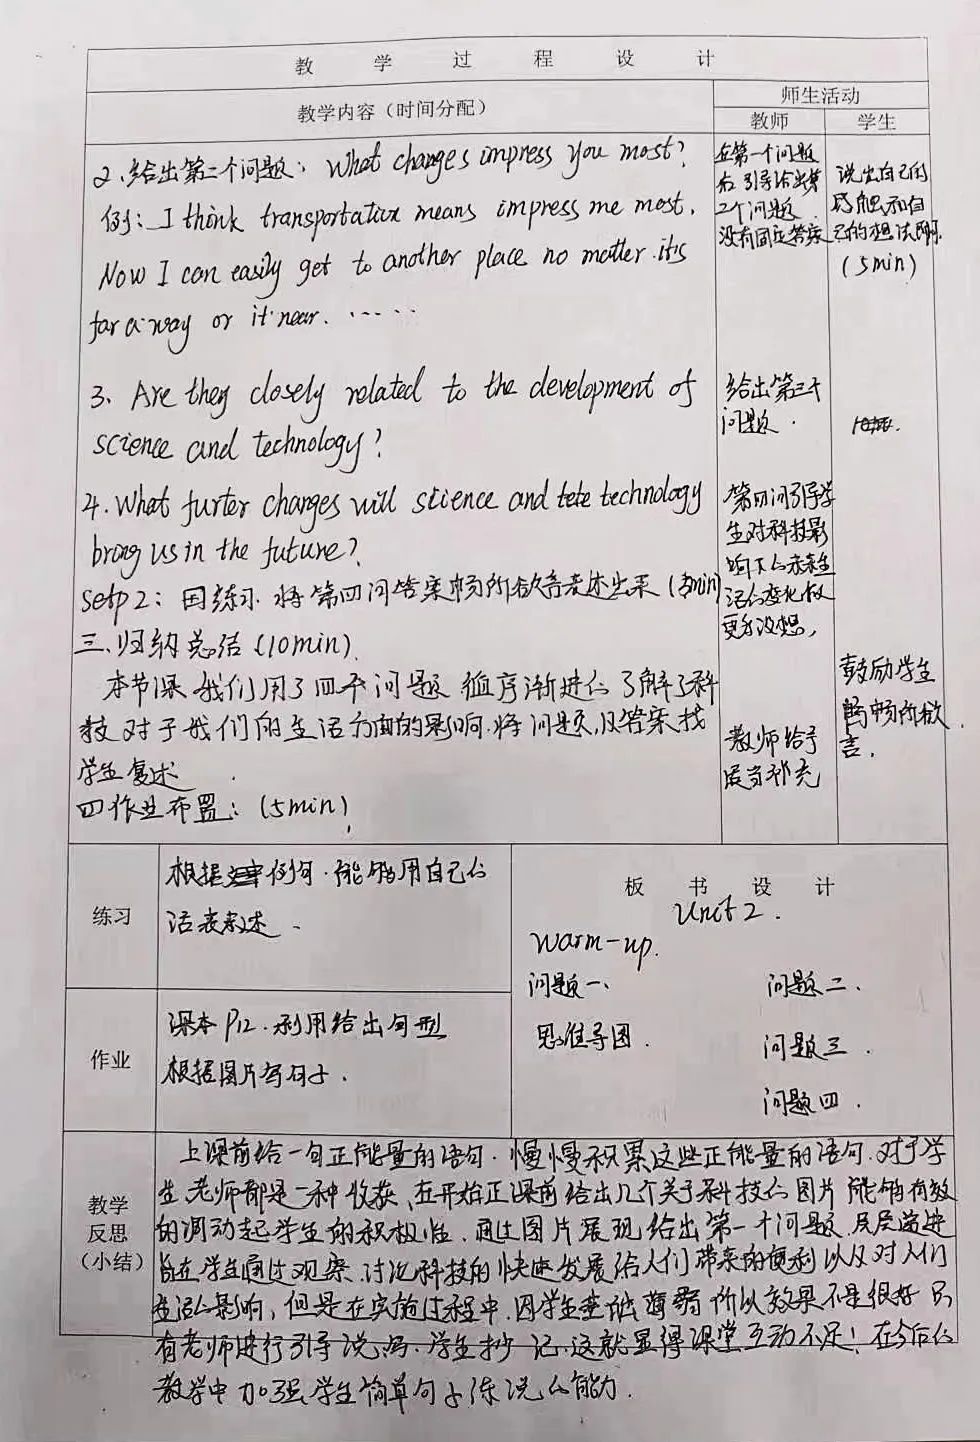 教 学 过 程 设 计
教学内容（时间分配）
师生活动
教师
学生
2、给出第二个问题：What changes impress you most?
例：I think transportation means impress me most.
Now I can easily get to another place no matter it's
far away or it near. ……
3、Are they closely related to the development of
science and technology?
4. What furter changes will science and technology
bring us in the future?
Setp 2：练习 将第四问答案畅所欲言表述出来 (3min)
三、归纳总结 (10min)
本节课我们用了四个问题 循序渐进的了解了科
技对于我们的生活方面的影响.将问题及答案找
学生复述
四作业布置：(5min)
在第一个问题
后引导给出第
二个问题.
没有固定答案
给出第三个
问题.
第四问引导学
生对科技影
响下的未来生
活的变化做
更多设想,
教师给予
适当补充
说出自己的
感觉和自
己的想法
(5min)
鼓励学生
畅所欲
言.
练习
根据例句.能够用自己的
话表述.
作业
课本 P12.利用给出句型
根据图片写句子.
板 书 设 计
Unit 2.
Warm-up.
问题一、
问题二.
思维导图.
问题三.
问题四.
教学
反思
（小结）
上课前给一句正能量的语句.慢慢积累这些正能量的语句.对于学
生老师都是一种收获、在开始正课前给出几个关于科技的图片能够有效
的调动起学生的积极性.通过图片展现给出第一个问题.层层递进
旨在学生通过观察.讨论科技的快速发展给人们带来的便利以及对人们
生活的影响,但是在实施过程中.因学生基础薄弱所以效果不是很好只
有老师进行引导说写.学生抄记.这就显得课堂互动不足!在今后的
教学中加强学生简单句子陈说的能力.